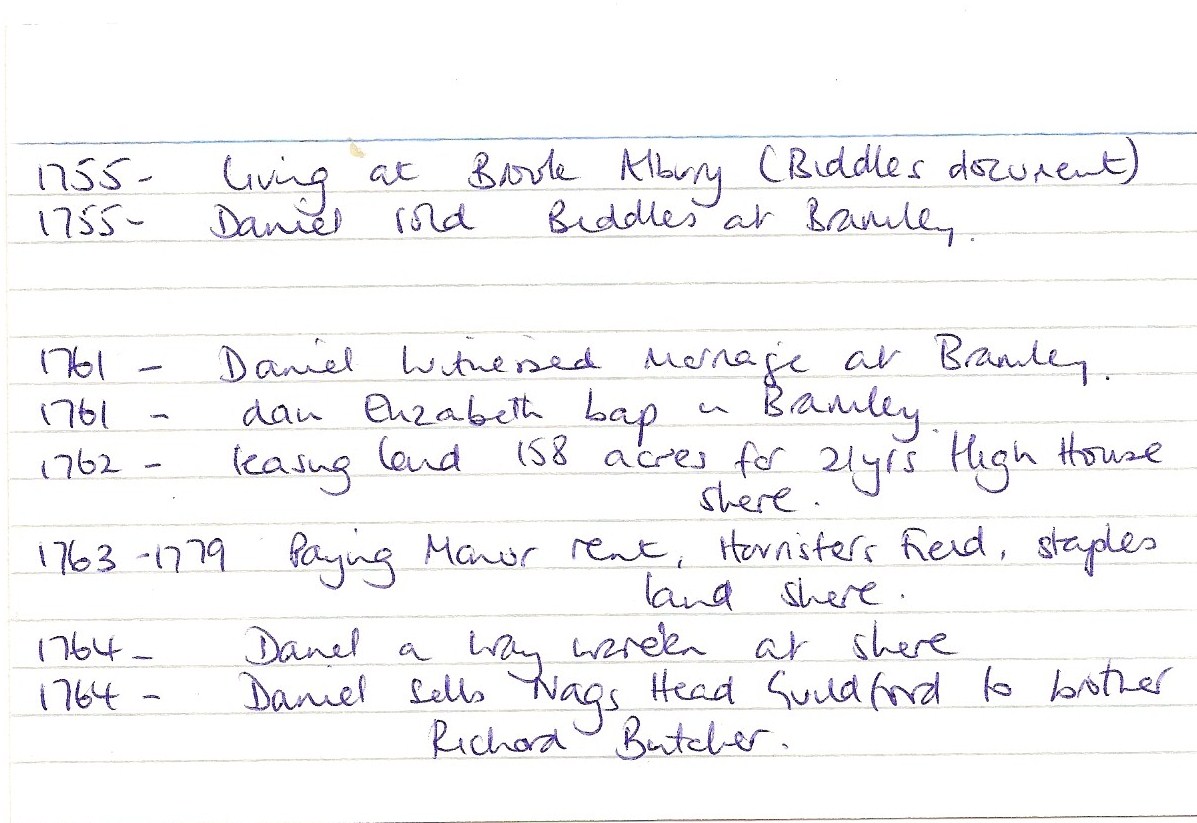 1755- living at Brook Albury (Biddles document)
1755- Daniel sold Biddles at Bramley.
1761 - Daniel witnessed marriage at Bramley.
1761 - dau Elizabeth bap in Bramley.
1762 - leasing land 158 acres for 21yrs High House
shere.
1763-1779 Paying Manor rent, Field, staples
land shere.
1764- Daniel a way warden at shere
1764 - Daniel sells Nags Head Guildford to brother
Richard Butcher.